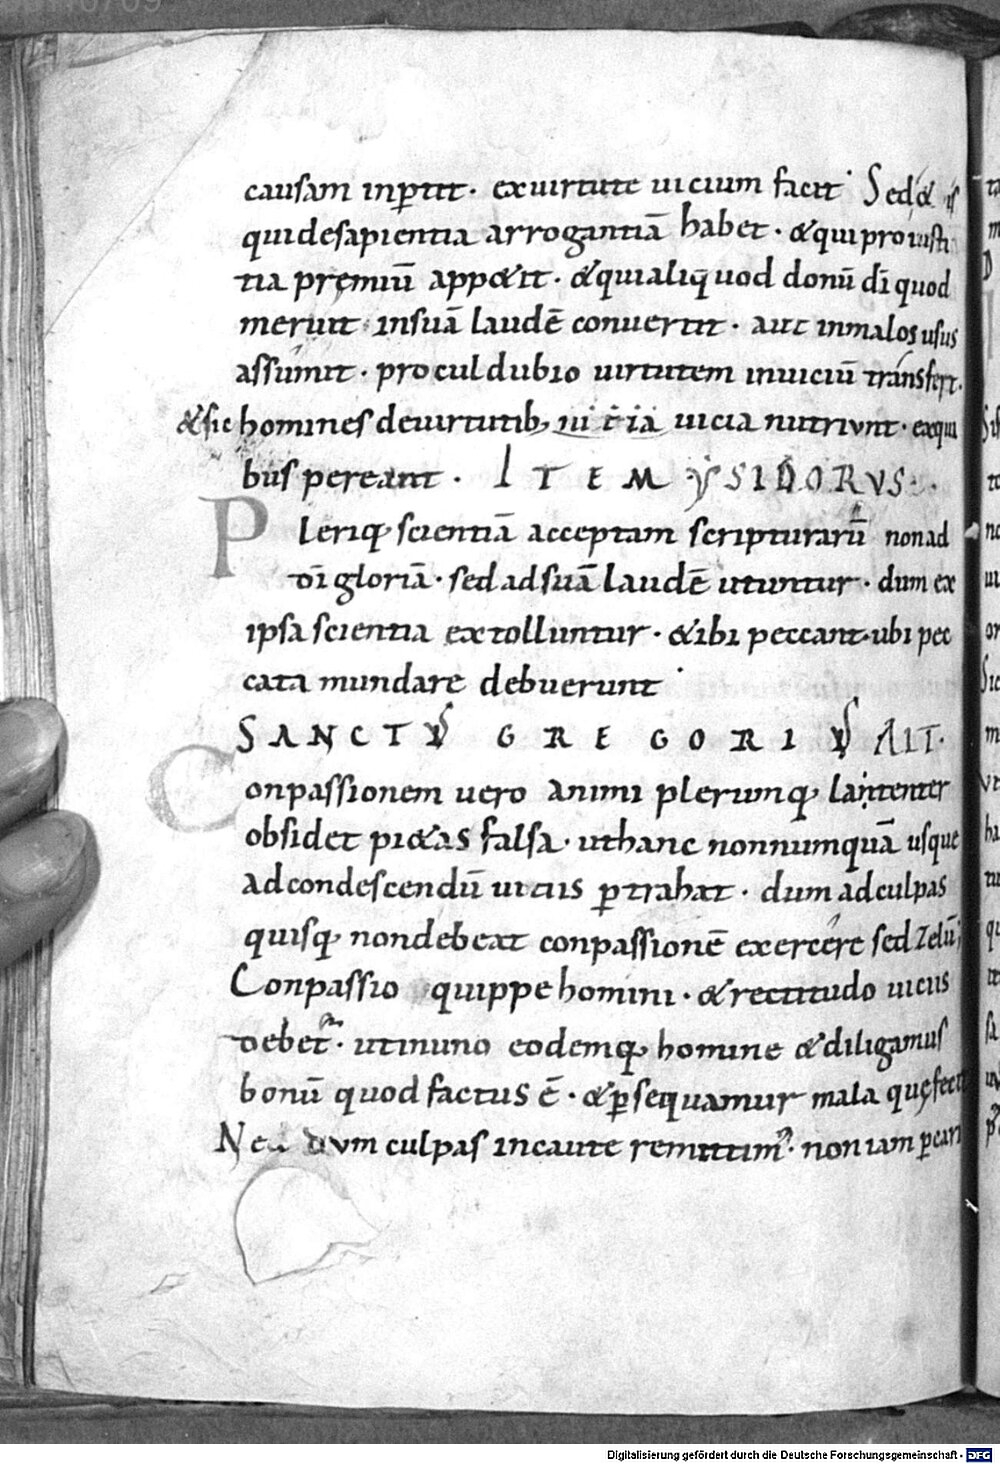 causam inptit · ex uirtute uicium facit · Sed & is
qui de sapientia arrogantiā habet · & qui pro iusti
tia pręmiū app&it · & qui aliquod donū dī quod
meruit in suā laudē conuertit · aut in malos usus
assumit · procul dubio uirtutem in uiciū transfert.
& sic homines de uirtutib; uicia nutriunt · ex qui
bus pereant · ITEM YSIDORUS ·
Pleriq; scientiā acceptam scripturarū non ad
dī gloriā · sed ad suā laudē utuntur · dum ex
ipsa scientia extolluntur · & ibi peccant · ubi pec
cata mundare debuerunt ·
SANCTUS GREGORIUS AIT ·
Conpassionem uero animi plerumq; latenter
obsidet pi&as falsa · ut hanc nonnumquā usque
ad condescendū uiciis ptrahat · dum ad culpas
quisq; non debeat conpassionē exercere sed zelū;
Conpassio quippe homini · & rectitudo uiciis
debet · ut in uno eodemq; homine & diligamus
bonū quod factus ē · & psequamur mala quę fecit
Ne dum culpas incaute remittim' · non iam
Digitalisierung gefördert durch die Deutsche Forschungsgemeinschaft · DFG